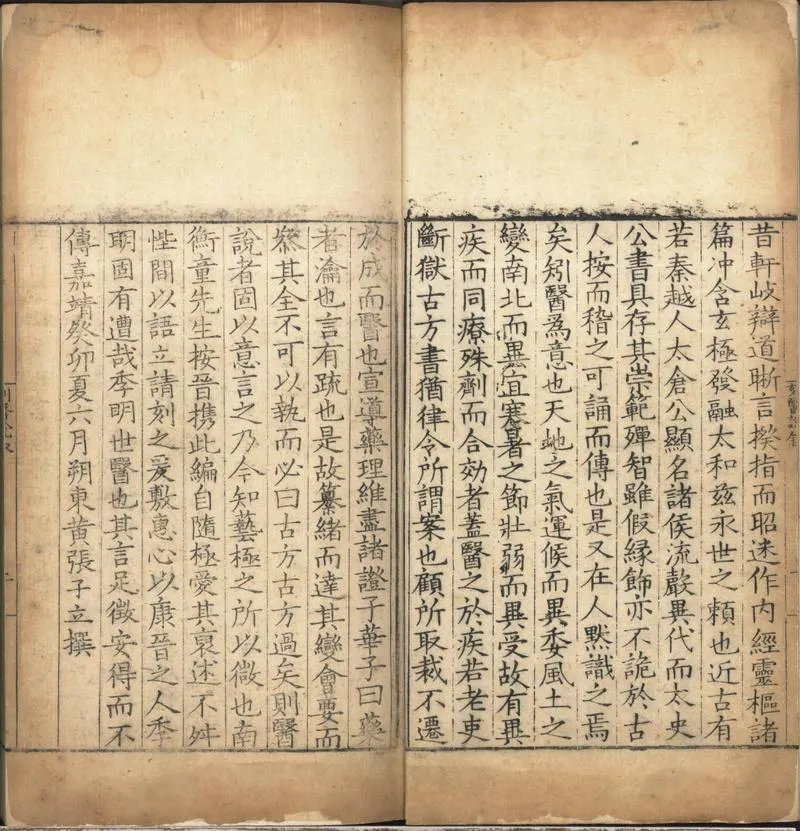 昔軒岐辯道晰言揆指而昭迷作内經靈樞諸
篇冲含玄極發融太和玆永世之頼也近古有
若秦越人太倉公顯名諸侯流歡異代而太史
公書具存其崇範殫智雖假緣飾亦不詭於古
人按而稽之可誦而傳也是又在人默識之焉
矣矧醫為意也天地之氣運候而異委風土之
變南北而異宜寒暑之節壯弱而異受故有異
疾而同療殊劑而合効者蓋醫之於疾若老吏
斷獄古方書猶律令所謂案也顧所取裁不遷
於成而醫也宣導藥理維盡諸證子華子曰藥
者瀹也言有疏也是故纂緒而達其變會要而
叅其全不可以執而必曰古方古方過矣則醫
說者固以意言之乃今知藝極之所以微也南
衡童先生按晉携此編自隨極愛其裒述不舛
陛間以語立請刻之爰敷惠心以康晉之人季
明固有遭哉季明世醫也其言足徵安得而不
傳嘉靖癸卯夏六月朔東黄張子立撰